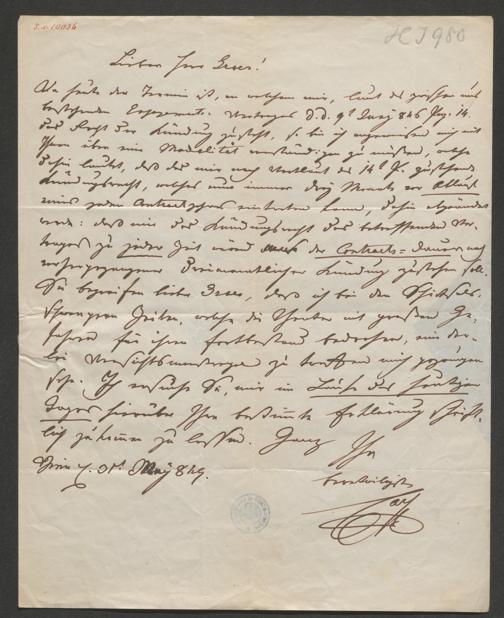 HJ 980
Lieber Herr Grois!
Da heute der Termin ist, in welchem mir, laut des zwischen uns
bestehenden Engagements-Vertrages d.d. 9t Juny 846 §. 14.
das Recht der Kündung zusteht, so bin ich
Ihnen über eine Modalität verständigen zu müssen, welche
dahin lautet, daß das mir nach des 14t §. zustehende
Kündungsrecht, welches nur immer drey Monate vor Ablauf
eines jeden Contractjahres eintreten kann, dahin abgeändert
werde: daß mir das Kündungsrecht des betreffenden Ver-
trages zu jeder Zeit der Contracts-Dauer nach
vorhergegangener dreimonatlicher Kündung zustehen soll.
Sie begreifen lieber Grois, daß ich bei den schicksals-
schwangeren Zeiten, welche die Theater mit großen Ge-
fahren für ihren Fortbestand bedrohen, eine der-
lei Vorsichtsmaßregel zu treffen mich gezwungen
sehe. Ich ersuche Sie, mir im Laufe des heutigen
Tages hierüber Ihre bestimmte Erklärung schrift-
lich zukommen zu lassen. Ganz Ihr
Wien 31t May 849.
bereitwilligster